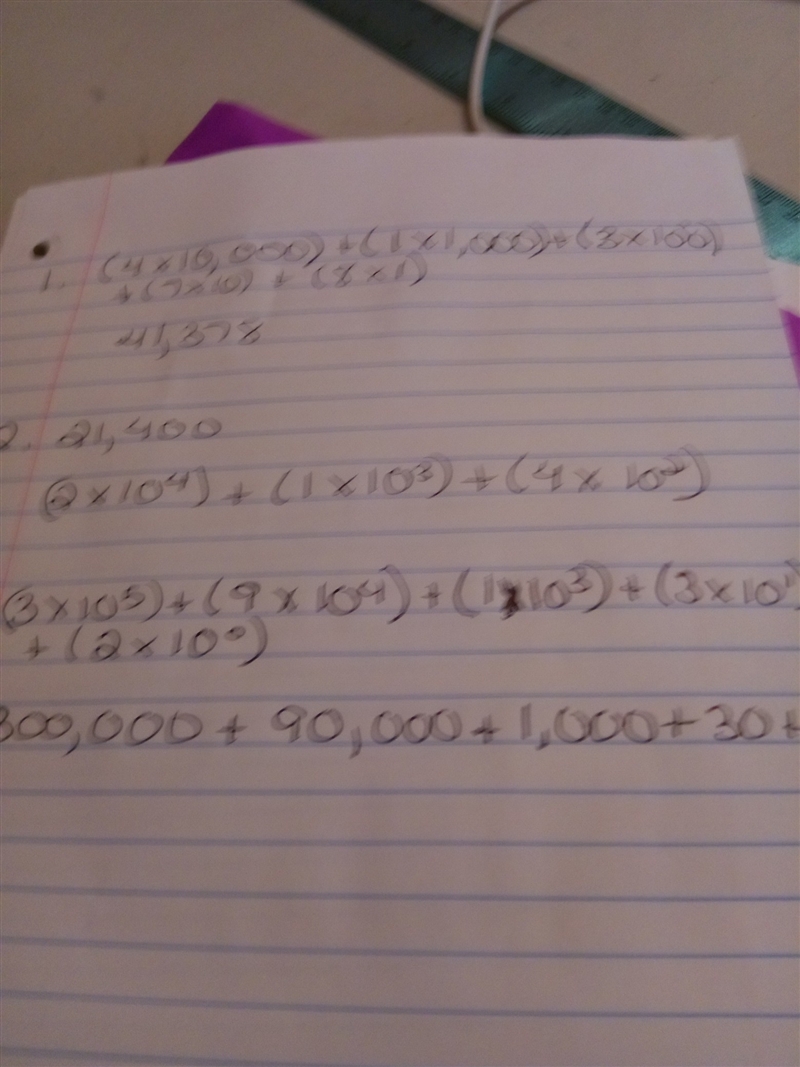 1. (4x10,000)+(1x1,000)+(3x100)
+(7x10)+(8x1)
41,378
2. 21,400
(2x10⁴)+(1x10³)+(4x10²)
(3x10⁵)+(9x10⁴)+(1x10³)+(3x10¹)
+(2x10⁰)
300,000+90,000+1,000+30+